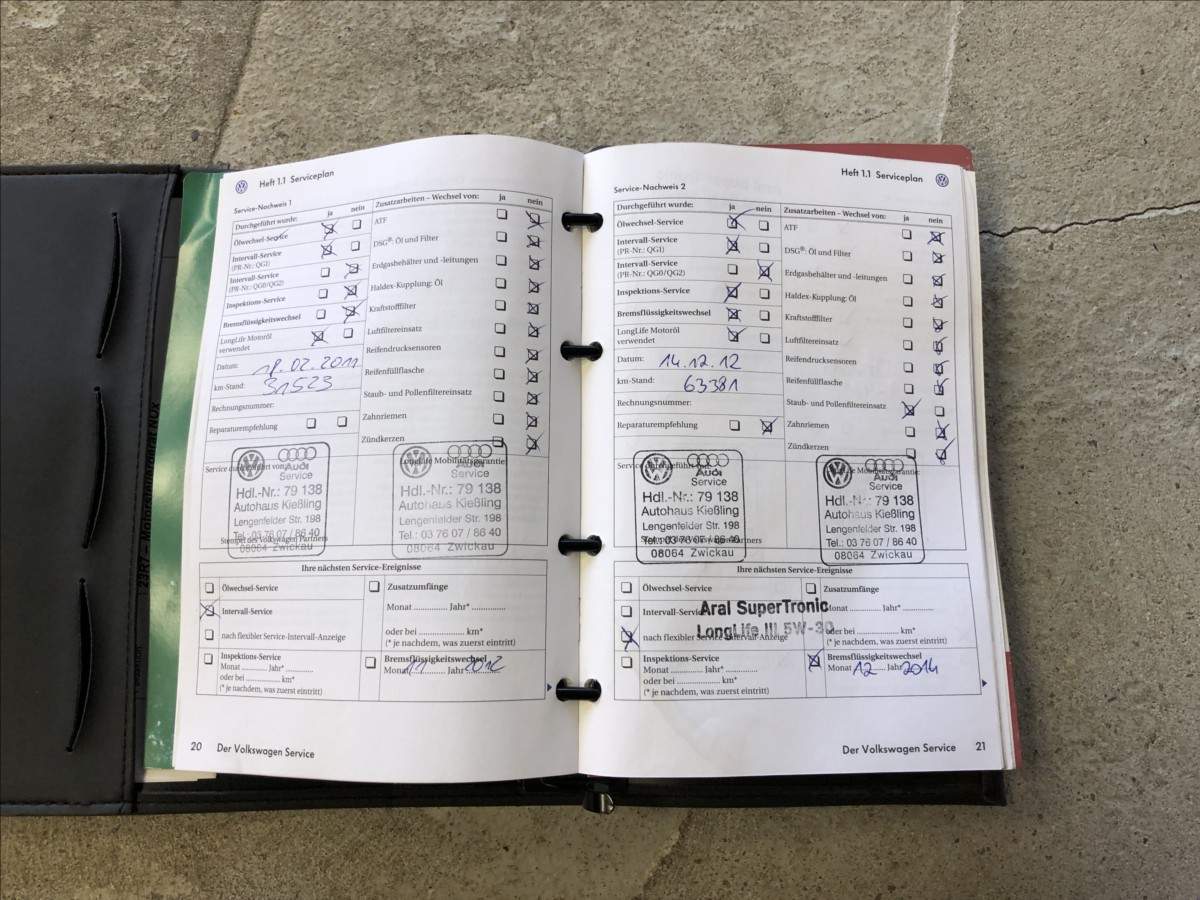 Heft 1.1 Serviceplan
Service-Nachweis 1
Durchgeführt wurde: ja nein
Ölwechsel-Service
Intervall-Service
(PR-Nr.: QG1)
Intervall-Service
(PR-Nr.: QG0/QG2)
Inspektions-Service
Bremsflüssigkeitswechsel
LongLife Motoröl
verwendet
Datum: 18.02.2011
km-Stand: 31523
Rechnungsnummer:
Reparaturempfehlung
Zusatzarbeiten – Wechsel von: ja nein
ATF
DSG®: Öl und Filter
Erdgasbehälter und -leitungen
Haldex-Kupplung: Öl
Kraftstofffilter
Luftfiltereinsatz
Reifendrucksensoren
Reifenfüllflasche
Staub- und Pollenfiltereinsatz
Zahnriemen
Zündkerzen
Service durchgeführt von:
Audi
Service
Hdl.-Nr.: 79 138
Autohaus Kießling
Lengenfelder Str. 198
Tel.: 03 76 07 / 86 40
08064 Zwickau
Stempel des Volkswagen Partners
LongLife Mobilitätsgarantie:
Audi
Service
Hdl.-Nr.: 79 138
Autohaus Kießling
Lengenfelder Str. 198
Tel.: 03 76 07 / 86 40
08064 Zwickau
Ihre nächsten Service-Ereignisse
Ölwechsel-Service
Intervall-Service
nach flexibler Service-Intervall-Anzeige
Inspektions-Service
Monat ........... Jahr* ............
oder bei ................ km*
(* je nachdem, was zuerst eintritt)
Zusatzumfänge
Monat ............. Jahr* .............
oder bei ..................... km*
(* je nachdem, was zuerst eintritt)
Bremsflüssigkeitswechsel
Monat 11 Jahr 2012
20 Der Volkswagen Service
Heft 1.1 Serviceplan
Service-Nachweis 2
Durchgeführt wurde: ja nein
Ölwechsel-Service
Intervall-Service
(PR-Nr.: QG1)
Intervall-Service
(PR-Nr.: QG0/QG2)
Inspektions-Service
Bremsflüssigkeitswechsel
LongLife Motoröl
verwendet
Datum: 14.12.12
km-Stand: 63381
Rechnungsnummer:
Reparaturempfehlung
Zusatzarbeiten – Wechsel von: ja nein
ATF
DSG®: Öl und Filter
Erdgasbehälter und -leitungen
Haldex-Kupplung: Öl
Kraftstofffilter
Luftfiltereinsatz
Reifendrucksensoren
Reifenfüllflasche
Staub- und Pollenfiltereinsatz
Zahnriemen
Zündkerzen
Service durchgeführt von:
Audi
Service
Hdl.-Nr.: 79 138
Autohaus Kießling
Lengenfelder Str. 198
Tel.: 03 76 07 / 86 40
08064 Zwickau
Audi
Service
Hdl.-Nr.: 79 138
Autohaus Kießling
Lengenfelder Str. 198
Tel.: 03 76 07 / 86 40
08064 Zwickau
Ihre nächsten Service-Ereignisse
Ölwechsel-Service
Intervall-Service
Aral SuperTronic
LongLife III 5W-30
nach flexibler Service-Intervall-Anzeige
Inspektions-Service
Monat ........... Jahr* ............
oder bei ................ km*
(* je nachdem, was zuerst eintritt)
Zusatzumfänge
Monat ............. Jahr* .............
oder bei ..................... km*
(* je nachdem, was zuerst eintritt)
Bremsflüssigkeitswechsel
Monat 12 Jahr 2014
Der Volkswagen Service 21